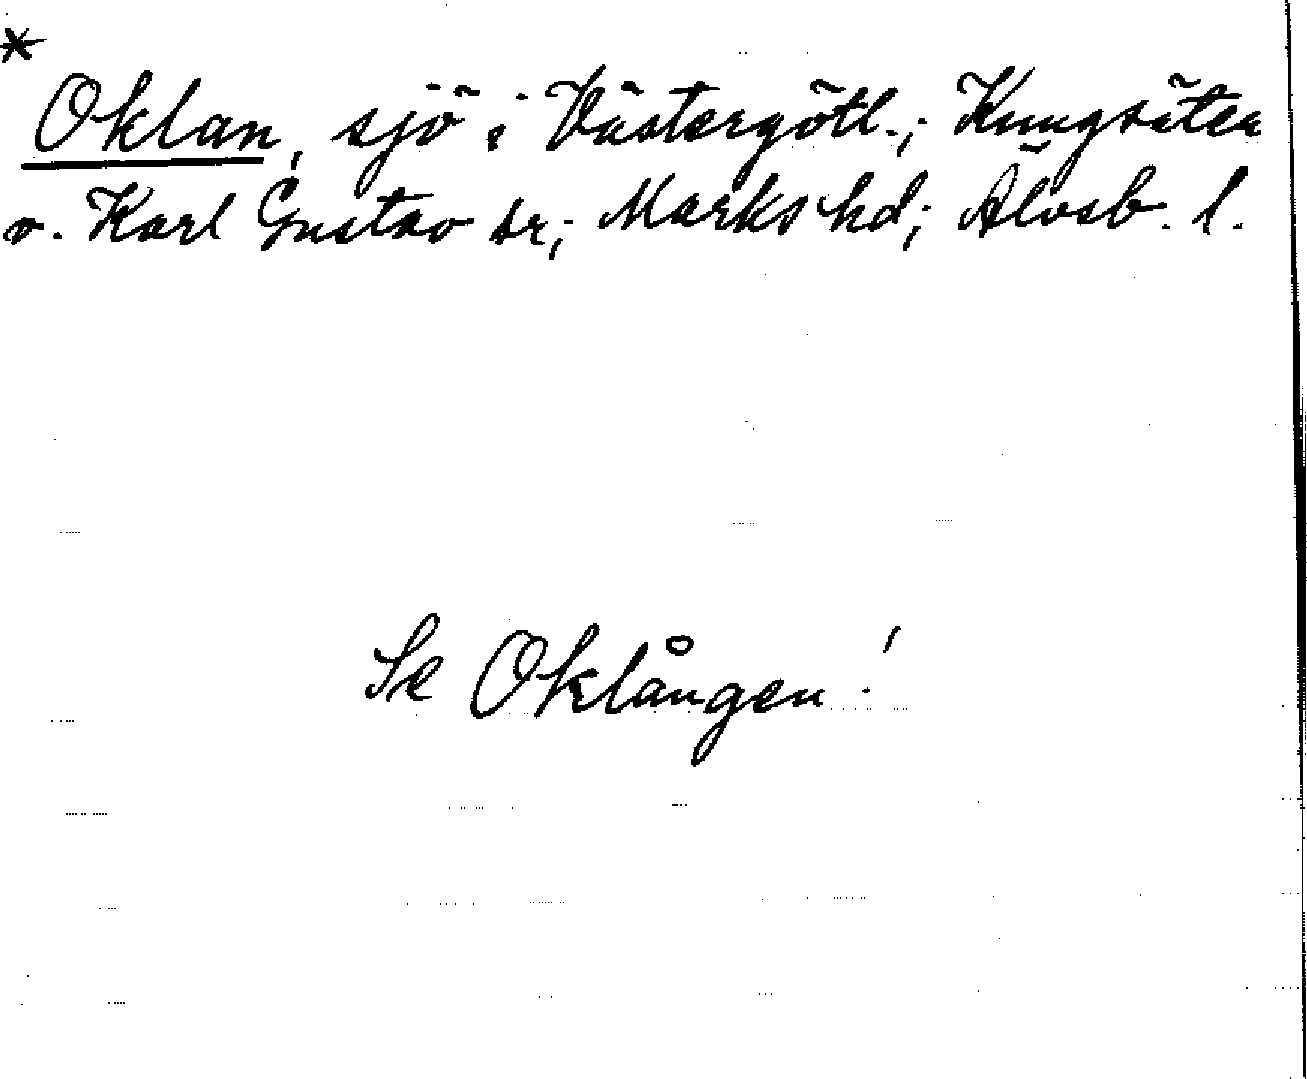 *
Oklan, sjö i Västergötl.; Kungsäter
o. Karl Gustav sr; Marks hd; Älvsb. l.
Se Oklången!